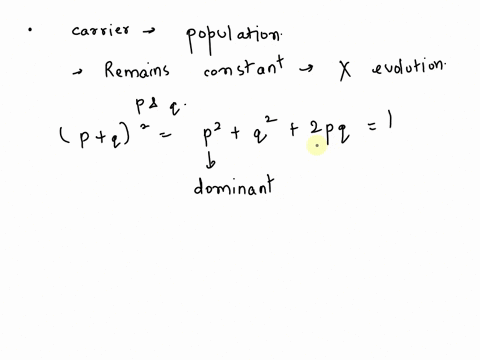 • carrier → population.
→ Remains constant → X evolution.
p & q.
(p+q)² = p² + q² + 2pq = 1
↓
dominant